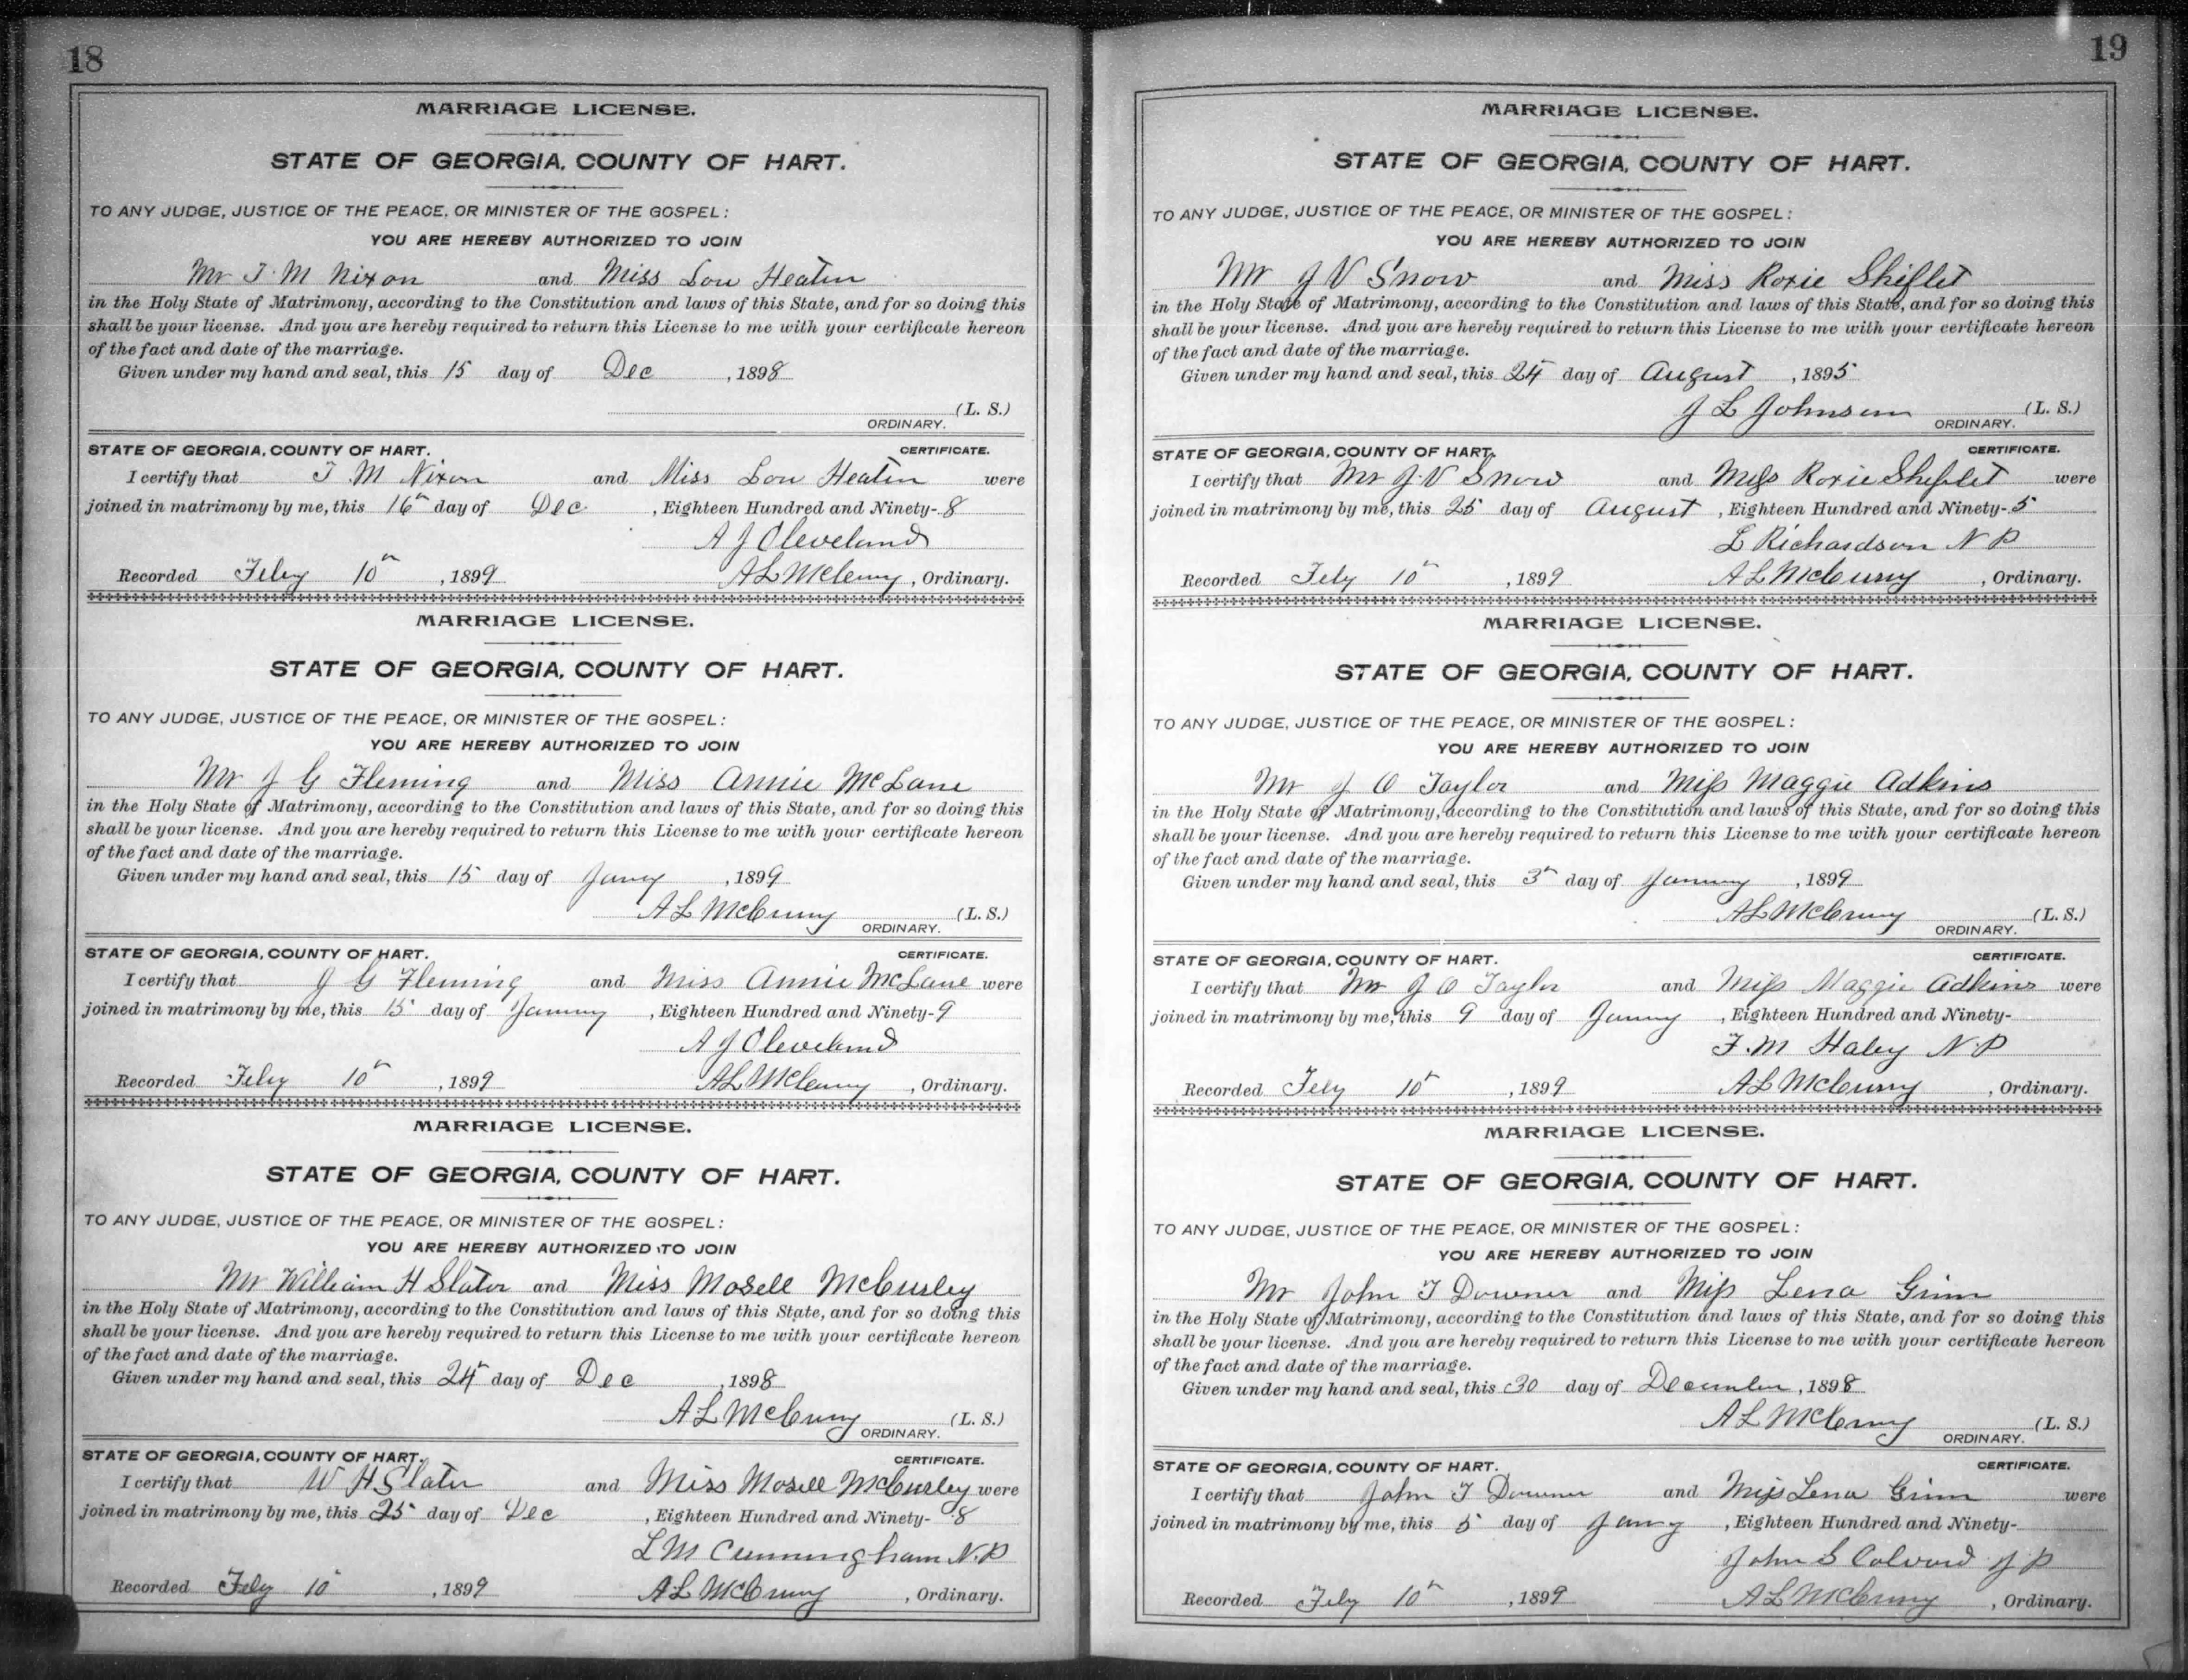 18
MARRIAGE LICENSE.
STATE OF GEORGIA, COUNTY OF HART.
TO ANY JUDGE, JUSTICE OF THE PEACE, OR MINISTER OF THE GOSPEL:
YOU ARE HEREBY AUTHORIZED TO JOIN
Mr T. M Nixon and Miss Lou Heaton
in the Holy State of Matrimony, according to the Constitution and laws of this State, and for so doing this
shall be your license. And you are hereby required to return this License to me with your certificate hereon
of the fact and date of the marriage.
Given under my hand and seal, this 15 day of Dec , 1898
(L. S.)
ORDINARY.
STATE OF GEORGIA, COUNTY OF HART. CERTIFICATE.
I certify that T M Nixon and Miss Lou Heaton were
joined in matrimony by me, this 16th day of Dec. , Eighteen Hundred and Ninety-8
A J Cleveland
Recorded Feby 10th , 1899 A L McCurry , Ordinary.
MARRIAGE LICENSE.
STATE OF GEORGIA, COUNTY OF HART.
TO ANY JUDGE, JUSTICE OF THE PEACE, OR MINISTER OF THE GOSPEL:
YOU ARE HEREBY AUTHORIZED TO JOIN
Mr J G Fleming and Miss Annie McLane
in the Holy State of Matrimony, according to the Constitution and laws of this State, and for so doing this
shall be your license. And you are hereby required to return this License to me with your certificate hereon
of the fact and date of the marriage.
Given under my hand and seal, this 15 day of Jany , 1899
A L McCurry (L. S.)
ORDINARY.
STATE OF GEORGIA, COUNTY OF HART. CERTIFICATE.
I certify that J G Fleming and Miss Annie McLane were
joined in matrimony by me, this 15 day of January , Eighteen Hundred and Ninety-9
A J Cleveland
Recorded Feby 10th , 1899 A L McCurry , Ordinary.
MARRIAGE LICENSE.
STATE OF GEORGIA, COUNTY OF HART.
TO ANY JUDGE, JUSTICE OF THE PEACE, OR MINISTER OF THE GOSPEL:
YOU ARE HEREBY AUTHORIZED TO JOIN
Mr William H Slator and Miss Mosell McCurley
in the Holy State of Matrimony, according to the Constitution and laws of this State, and for so doing this
shall be your license. And you are hereby required to return this License to me with your certificate hereon
of the fact and date of the marriage.
Given under my hand and seal, this 24th day of Dec , 1898
A L McCurry (L. S.)
ORDINARY.
STATE OF GEORGIA, COUNTY OF HART. CERTIFICATE.
I certify that W H Slator and Miss Mosell McCurley were
joined in matrimony by me, this 25 day of Dec , Eighteen Hundred and Ninety-8
L M Cunningham N.P
Recorded Feby 10th , 1899 A L McCurry , Ordinary.
19
MARRIAGE LICENSE.
STATE OF GEORGIA, COUNTY OF HART.
TO ANY JUDGE, JUSTICE OF THE PEACE, OR MINISTER OF THE GOSPEL:
YOU ARE HEREBY AUTHORIZED TO JOIN
Mr J V Snow and Miss Roxie Shiflet
in the Holy State of Matrimony, according to the Constitution and laws of this State, and for so doing this
shall be your license. And you are hereby required to return this License to me with your certificate hereon
of the fact and date of the marriage.
Given under my hand and seal, this 24 day of August , 1895
J L Johnson (L. S.)
ORDINARY.
STATE OF GEORGIA, COUNTY OF HART. CERTIFICATE.
I certify that Mr J. V Snow and Miss Roxie Shiflet were
joined in matrimony by me, this 25 day of August , Eighteen Hundred and Ninety-5
L Richardson N P
Recorded Feby 10th , 1899 A L McCurry , Ordinary.
MARRIAGE LICENSE.
STATE OF GEORGIA, COUNTY OF HART.
TO ANY JUDGE, JUSTICE OF THE PEACE, OR MINISTER OF THE GOSPEL:
YOU ARE HEREBY AUTHORIZED TO JOIN
Mr J O Taylor and Miss Maggie Adkins
in the Holy State of Matrimony, according to the Constitution and laws of this State, and for so doing this
shall be your license. And you are hereby required to return this License to me with your certificate hereon
of the fact and date of the marriage.
Given under my hand and seal, this 3rd day of January , 1899
A L McCurry (L. S.)
ORDINARY.
STATE OF GEORGIA, COUNTY OF HART. CERTIFICATE.
I certify that Mr J O Taylor and Miss Maggie Adkins were
joined in matrimony by me, this 9 day of January , Eighteen Hundred and Ninety-
F. M Haley N.P
Recorded Feby 10th , 1899 A L McCurry , Ordinary.
MARRIAGE LICENSE.
STATE OF GEORGIA, COUNTY OF HART.
TO ANY JUDGE, JUSTICE OF THE PEACE, OR MINISTER OF THE GOSPEL:
YOU ARE HEREBY AUTHORIZED TO JOIN
Mr John T Downer and Miss Lena Ginn
in the Holy State of Matrimony, according to the Constitution and laws of this State, and for so doing this
shall be your license. And you are hereby required to return this License to me with your certificate hereon
of the fact and date of the marriage.
Given under my hand and seal, this 30 day of December , 1898
A L McCurry (L. S.)
ORDINARY.
STATE OF GEORGIA, COUNTY OF HART. CERTIFICATE.
I certify that John T Downer and Miss Lena Ginn were
joined in matrimony by me, this 5 day of Jany , Eighteen Hundred and Ninety-
John S Calvard J P
Recorded Feby 10th , 1899 A L McCurry , Ordinary.